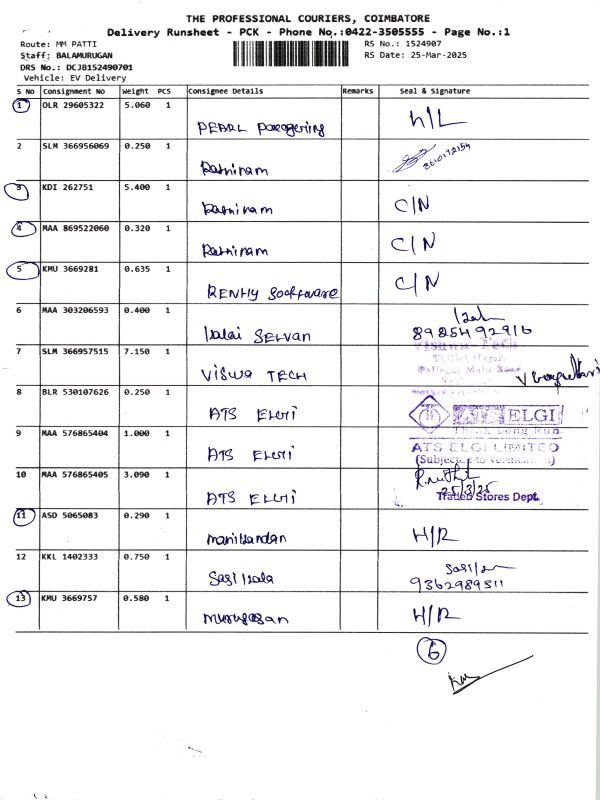 THE PROFESSIONAL COURIERS, COIMBATORE
Delivery Runsheet - PCK - Phone No.:0422-3505555 - Page No.:1
Route: MM PATTI
RS No.: 1524907
Staff: BALAMURUGAN
RS Date: 25-Mar-2025
DRS No.: DCJB152490701
Vehicle: EV Delivery
S No Consignment No Weight PCS Consignee Details Remarks Seal & Signature
1 OLR 29605322 5.060 1 PEARL H/L
2 SLM 366956069 0.250 1 Ratniram
3 KDI 262751 5.400 1 Ratniram C/N
4 MAA 869522060 0.320 1 Ratniram C/N
5 KMU 3669281 0.635 1 C/N
6 MAA 303206593 0.400 1 Kalai SELVAN 8925492916
7 SLM 366957515 7.150 1 VISWA TECH
Viswa Tech
8 BLR 530107626 0.250 1 ATS ELGI
ELGI
9 MAA 576865404 1.000 1 ATS ELGI
ATS ELGI LIMITED
(Subject to verification)
10 MAA 576865405 3.090 1 ATS ELGI
25/3/25
Traded Stores Dept.
11 ASD 5065083 0.290 1 manikandan H/R
12 KKL 1402333 0.750 1 Sasikala
9362989311
13 KMU 3669757 0.580 1 murugasan H/R
6